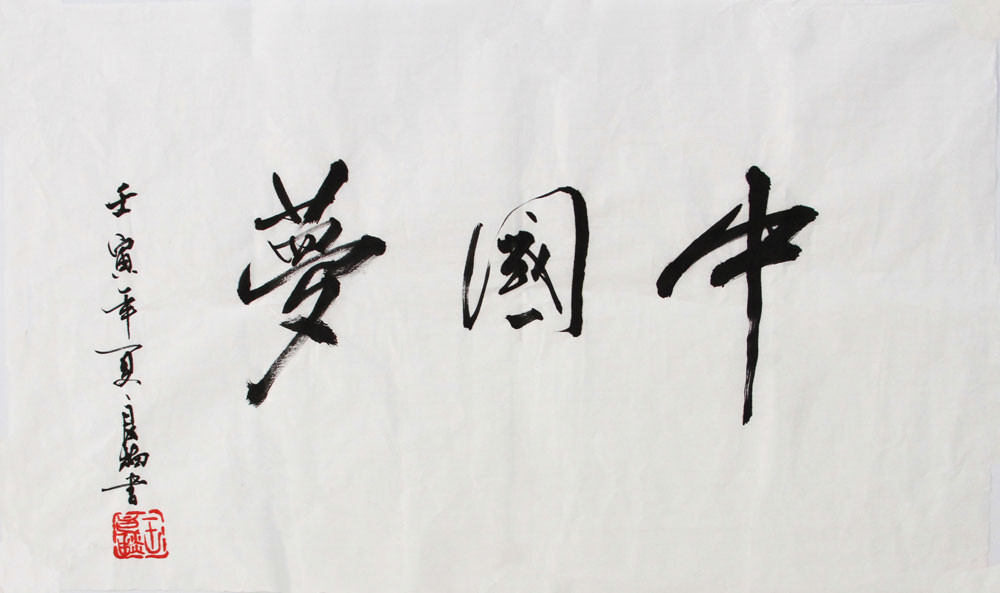 中國夢
壬寅年夏良梅書